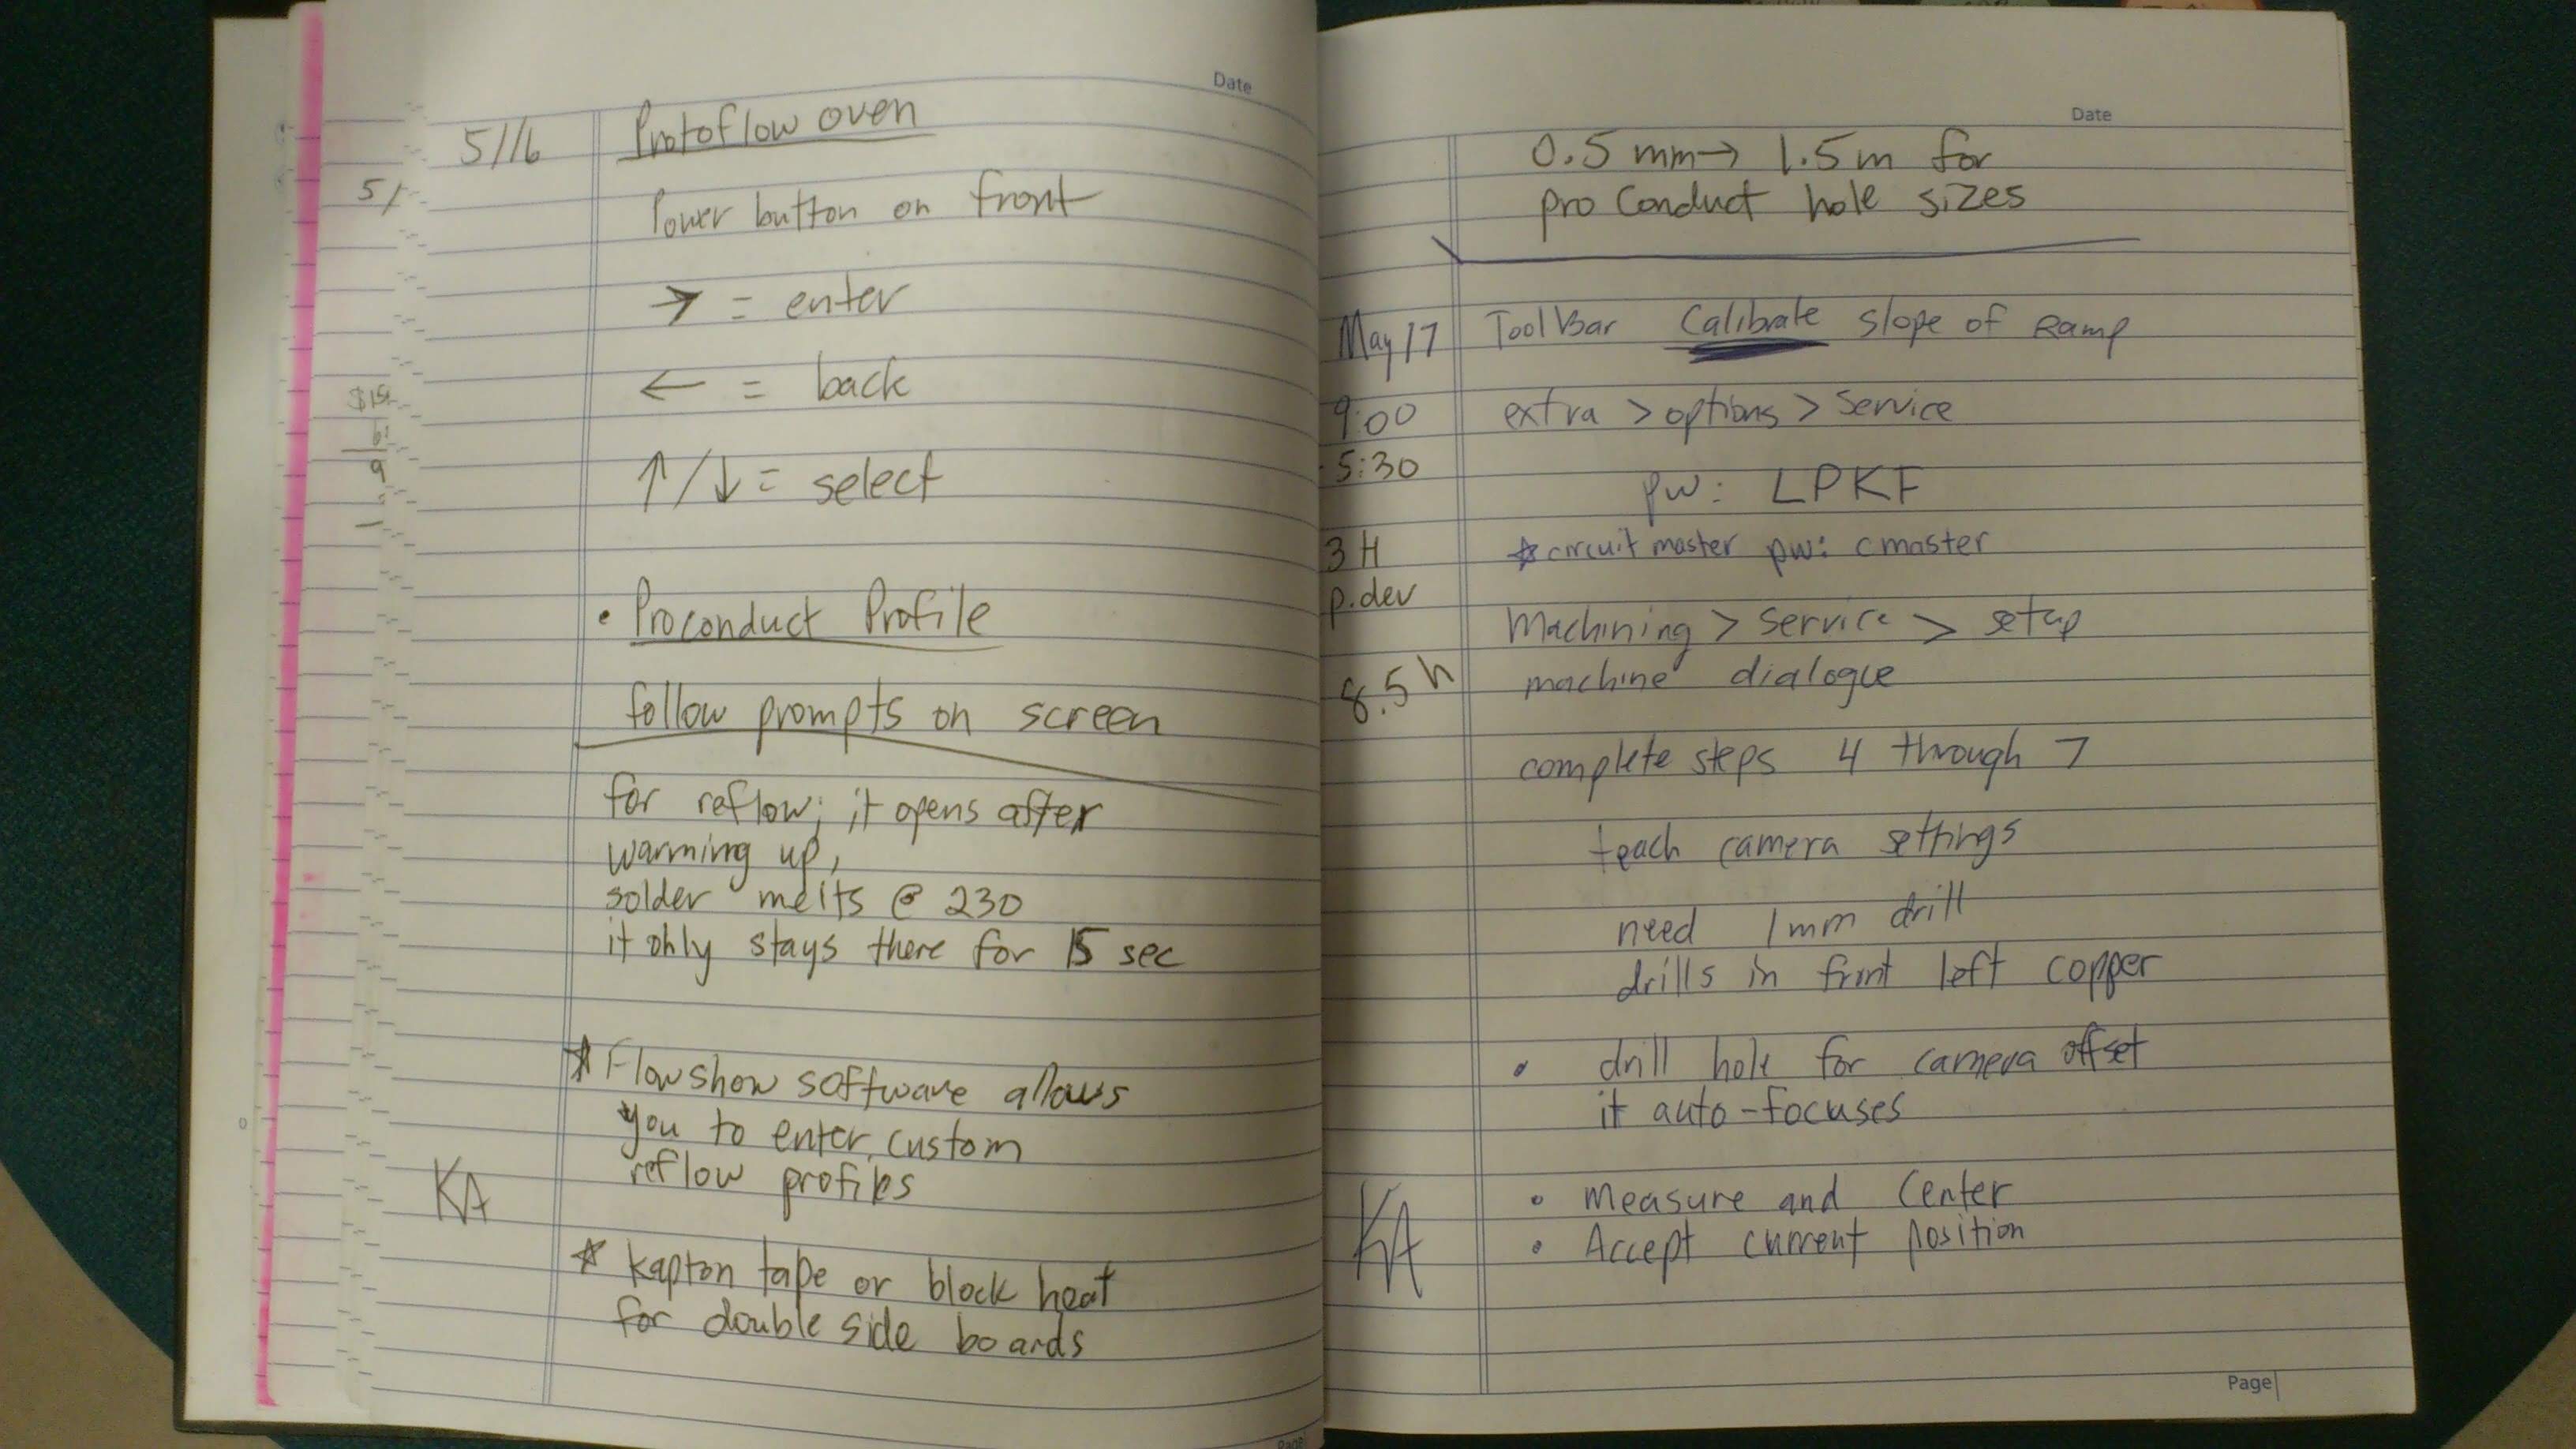 Date
5/16 Protoflow oven
Power button on front
→ = enter
← = back
↑/↓ = select
• Proconduct Profile
follow prompts on screen
for reflow; it opens after
warming up,
solder melts @ 230
it only stays there for 15 sec
* Flowshow software allows
you to enter custom
reflow profiles
KA
* Kapton tape or block heat
for double side boards
Page
5/
$15
9
Date
0.5 mm→ 1.5m for
pro Conduct hole sizes
May 17 Tool Bar Calibrate slope of Ramp
9:00 extra > options > Service
5:30
pw: LPKF
3 H * circuit master pw: cmaster
p.dev
Machining > Service > setup
8.5 h machine dialogue
complete steps 4 through 7
teach camera settings
need 1mm drill
drills in front left copper
• drill hole for camera offset
it auto-focuses
• Measure and Center
KA • Accept current position
Page